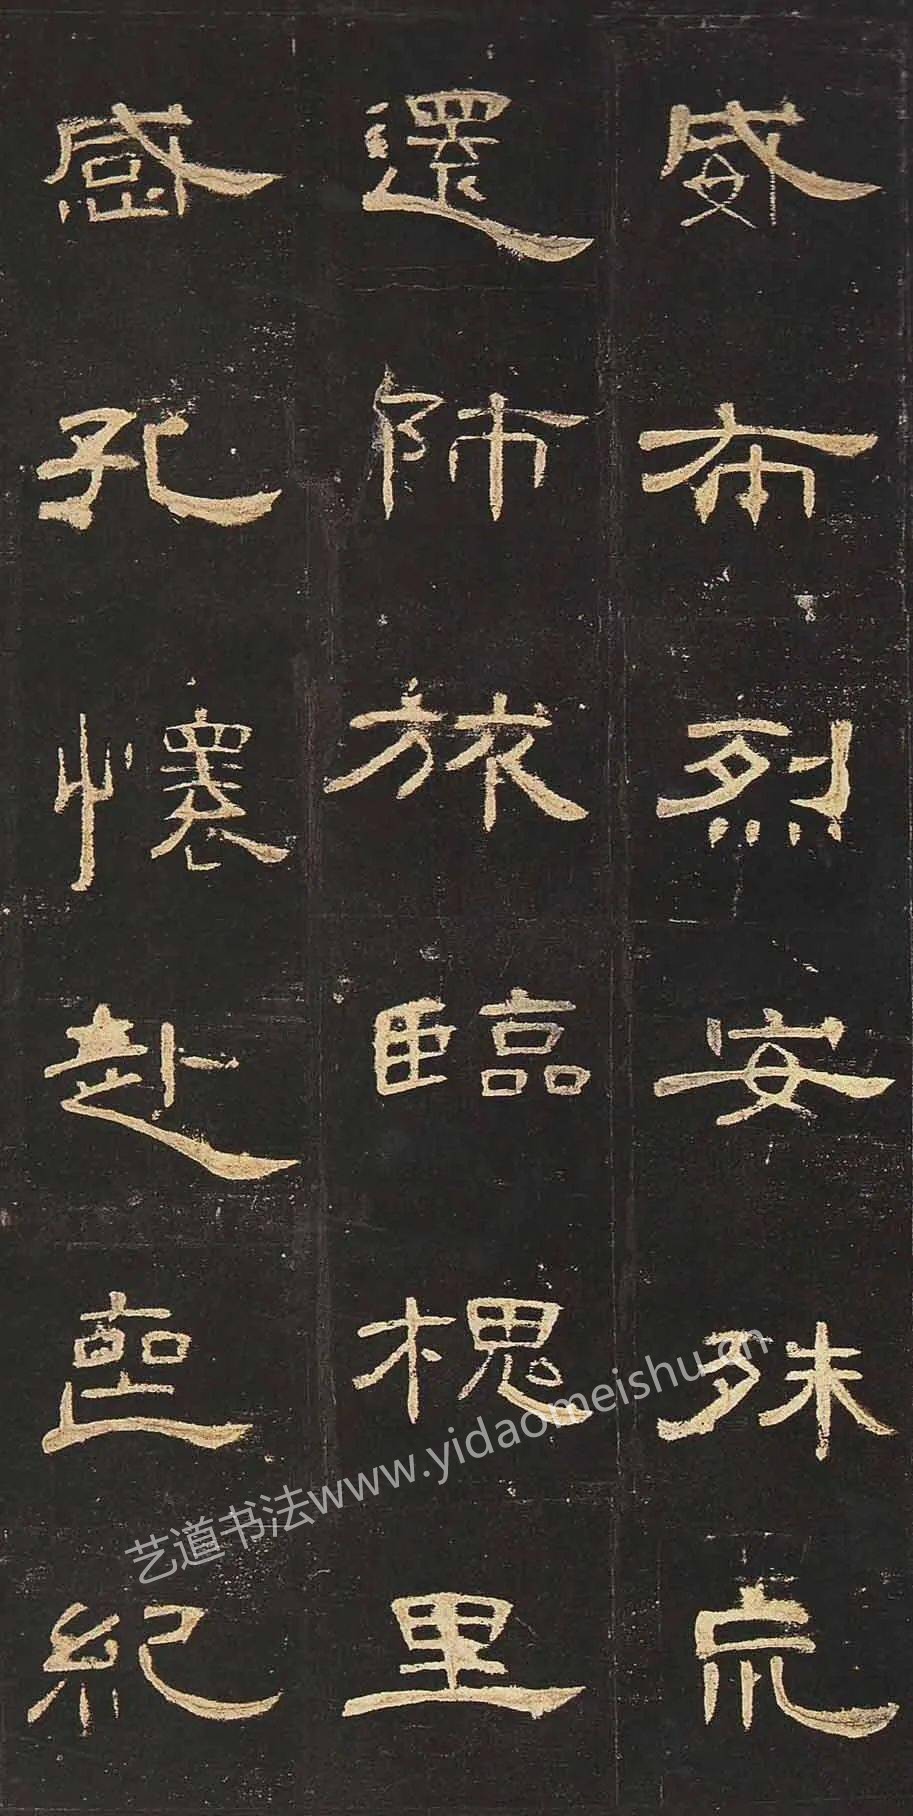 威布烈安殊巟
還師旅臨槐里
感孔懷赴㐮紀
艺道书法www.yidaomeishu.cn